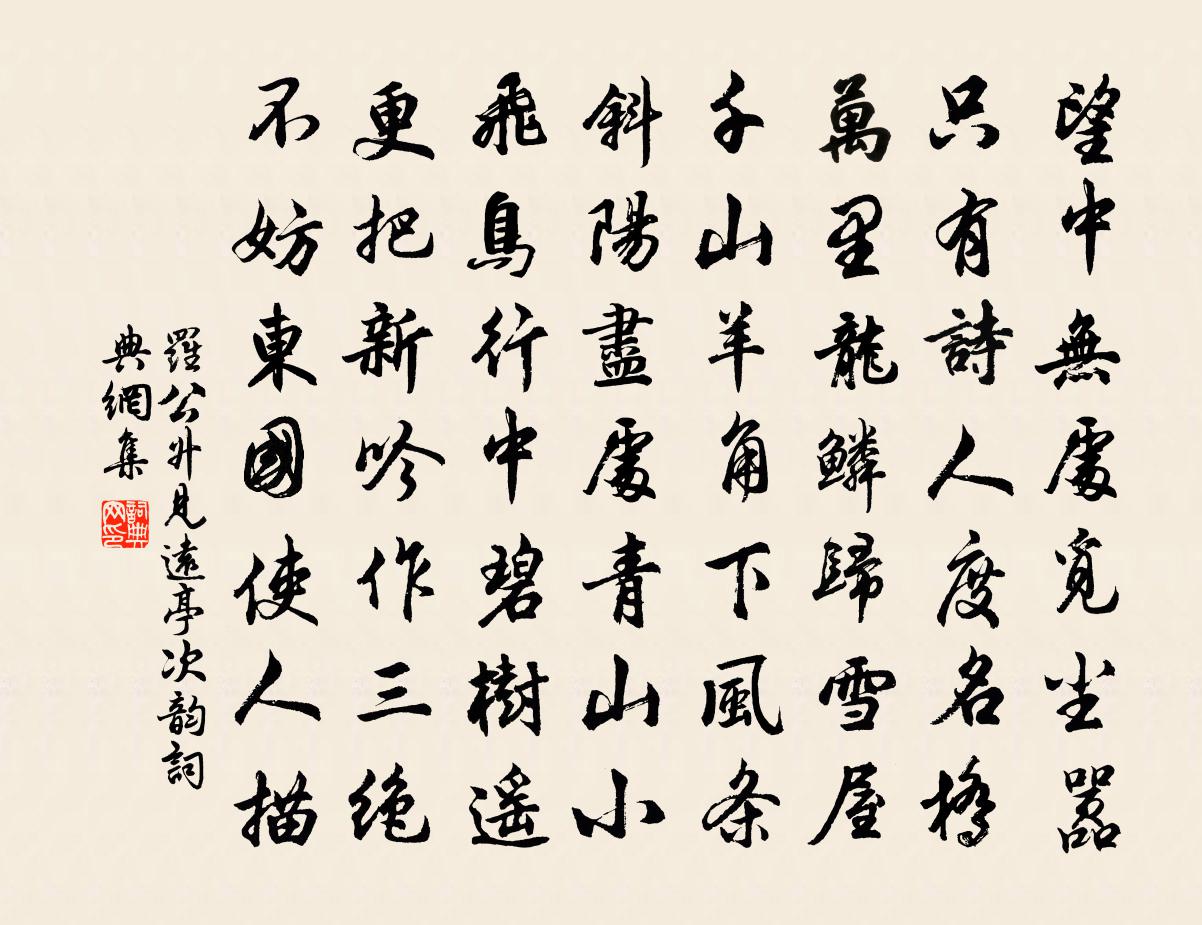 望中無處覓尘囂
只有詩人度名橋
萬里龍鱗歸雪屋
千山羊角下風条
斜陽盡處青山小
飛鳥行中碧樹遥
更把新吟作三绝
不妨東國使人描
羅公升见遠亭次韵詞
典網集
詞典
网印